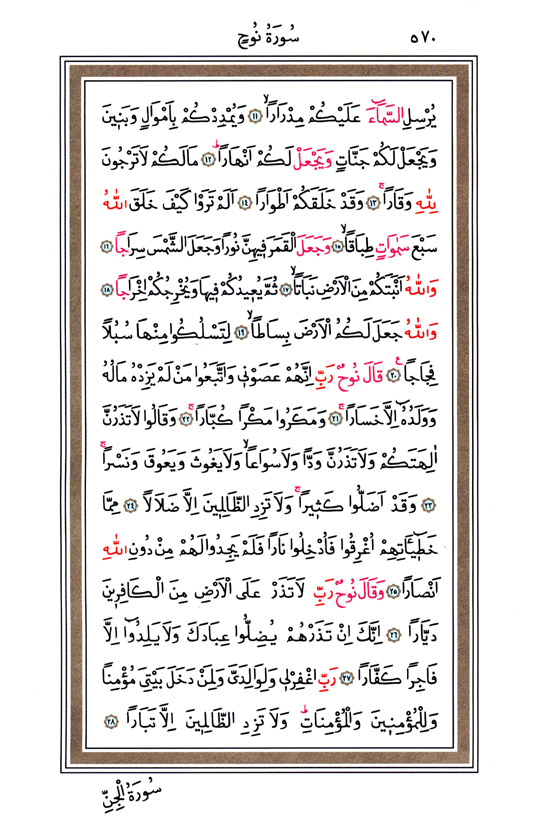 ٥٧٠ سُورَةُ نُوحٍ
يُرْسِلِ السَّمَٓاءَ عَلَيْكُمْ مِدْرَارًاۙ ﴿١١﴾ وَيُمْدِدْكُمْ بِاَمْوَالٍ وَبَنٖينَ
وَيَجْعَلْ لَكُمْ جَنَّاتٍ وَيَجْعَلْ لَكُمْ اَنْهَارًاۜ ﴿١٢﴾ مَالَكُمْ لَا تَرْجُونَ
لِلّٰهِ وَقَارًاۚ ﴿١٣﴾ وَقَدْ خَلَقَكُمْ اَطْوَارًا ﴿١٤﴾ اَلَمْ تَرَوْا كَيْفَ خَلَقَ اللّٰهُ
سَبْعَ سَمٰوَاتٍ طِبَاقًاۙ ﴿١٥﴾ وَجَعَلَ الْقَمَرَ فٖيهِنَّ نُورًا وَجَعَلَ الشَّمْسَ سِرَاجًا ﴿١٦﴾
وَاللّٰهُ اَنْبَتَكُمْ مِنَ الْاَرْضِ نَبَاتًاۙ ﴿١٧﴾ ثُمَّ يُعٖيدُكُمْ فٖيهَا وَيُخْرِجُكُمْ اِخْرَاجًا ﴿١٨﴾
وَاللّٰهُ جَعَلَ لَكُمُ الْاَرْضَ بِسَاطًاۙ ﴿١٩﴾ لِتَسْلُكُوا مِنْهَا سُبُلًا
فِجَاجًاࣖ ﴿٢٠﴾ قَالَ نُوحٌ رَبِّ اِنَّهُمْ عَصَوْنٖى وَاتَّبَعُوا مَنْ لَمْ يَزِدْهُ مَالُهُ
وَوَلَدُهُٓ اِلَّا خَسَارًاۚ ﴿٢١﴾ وَمَكَرُوا مَكْرًا كُبَّارًاۚ ﴿٢٢﴾ وَقَالُوا لَا تَذَرُنَّ
اٰلِهَتَكُمْ وَلَا تَذَرُنَّ وَدًّا وَلَا سُوَاعًاۙ وَلَا يَغُوثَ وَيَعُوقَ وَنَسْرًاۚ
﴿٢٣﴾ وَقَدْ اَضَلُّوا كَثٖيرًاۚ وَلَا تَزِدِ الظَّالِمٖينَ اِلَّا ضَلَالًا ﴿٢٤﴾ مِمَّا
خَطٖٓيـَٔاتِهِمْ اُغْرِقُوا فَاُدْخِلُوا نَارًا فَلَمْ يَجِدُوا لَهُمْ مِنْ دُونِ اللّٰهِ
اَنْصَارًا ﴿٢٥﴾ وَقَالَ نُوحٌ رَبِّ لَا تَذَرْ عَلَى الْاَرْضِ مِنَ الْكَافِرٖينَ
دَيَّارًا ﴿٢٦﴾ اِنَّكَ اِنْ تَذَرْهُمْ يُضِلُّوا عِبَادَكَ وَلَا يَلِدُٓوا اِلَّا
فَاجِرًا كَفَّارًا ﴿٢٧﴾ رَبِّ اغْفِرْلٖى وَلِوَالِدَىَّ وَلِمَنْ دَخَلَ بَيْتِىَ مُؤْمِنًا
وَلِلْمُؤْمِنٖينَ وَالْمُؤْمِنَاتِۜ وَلَا تَزِدِ الظَّالِمٖينَ اِلَّا تَبَارًا ﴿٢٨﴾
سُورَةُ الْجِنِّ